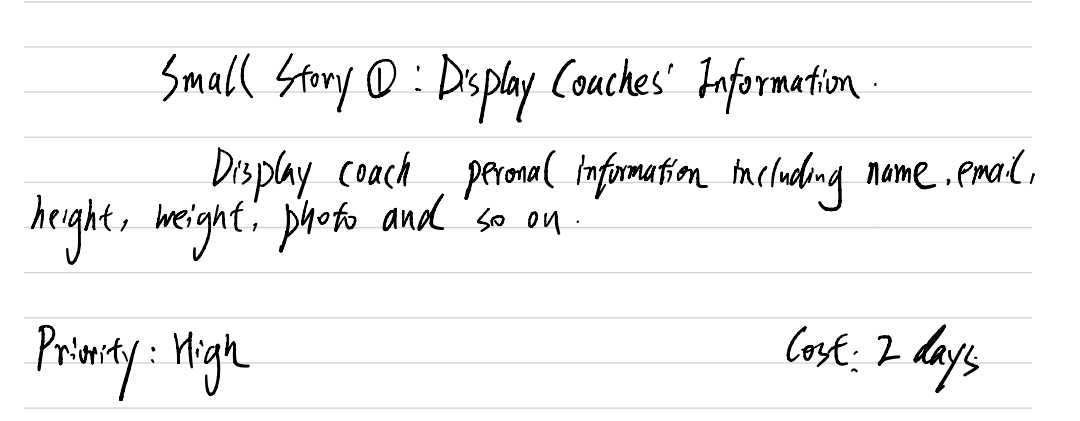 Small Story ①: Display Coaches' Information.
Display coach peronal information including name, email,
height, weight, photo and so on.
Priority: High Cost: 2 days